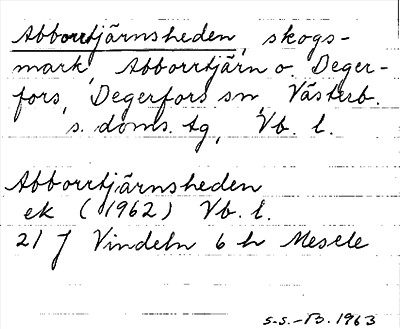 Abborrtjärnsheden, skogs-
mark, Abborrtjärn o. Deger-
fors, Degerfors sn, Västerb.
s. doms. tg, Vb. l.
Abborrtjärnsheden
ek (1962) Vb. l.
21 J Vindeln 6 h Mesele
S.S.-B. 1963